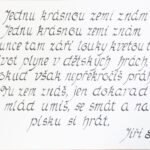 Jednu krásnou zemi znám
Jednu krásnou zemi znám
unce tam září louky kvetou t
ivot plyne v dětských hrách
okud však nepřekročíš práh
u zem znáš, jen dokavad
mlád umíš, se smát a na
písku si hrát.
Jiří S